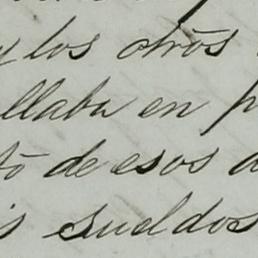 y los otros
llaba en p
tó de esos a
s sueldos